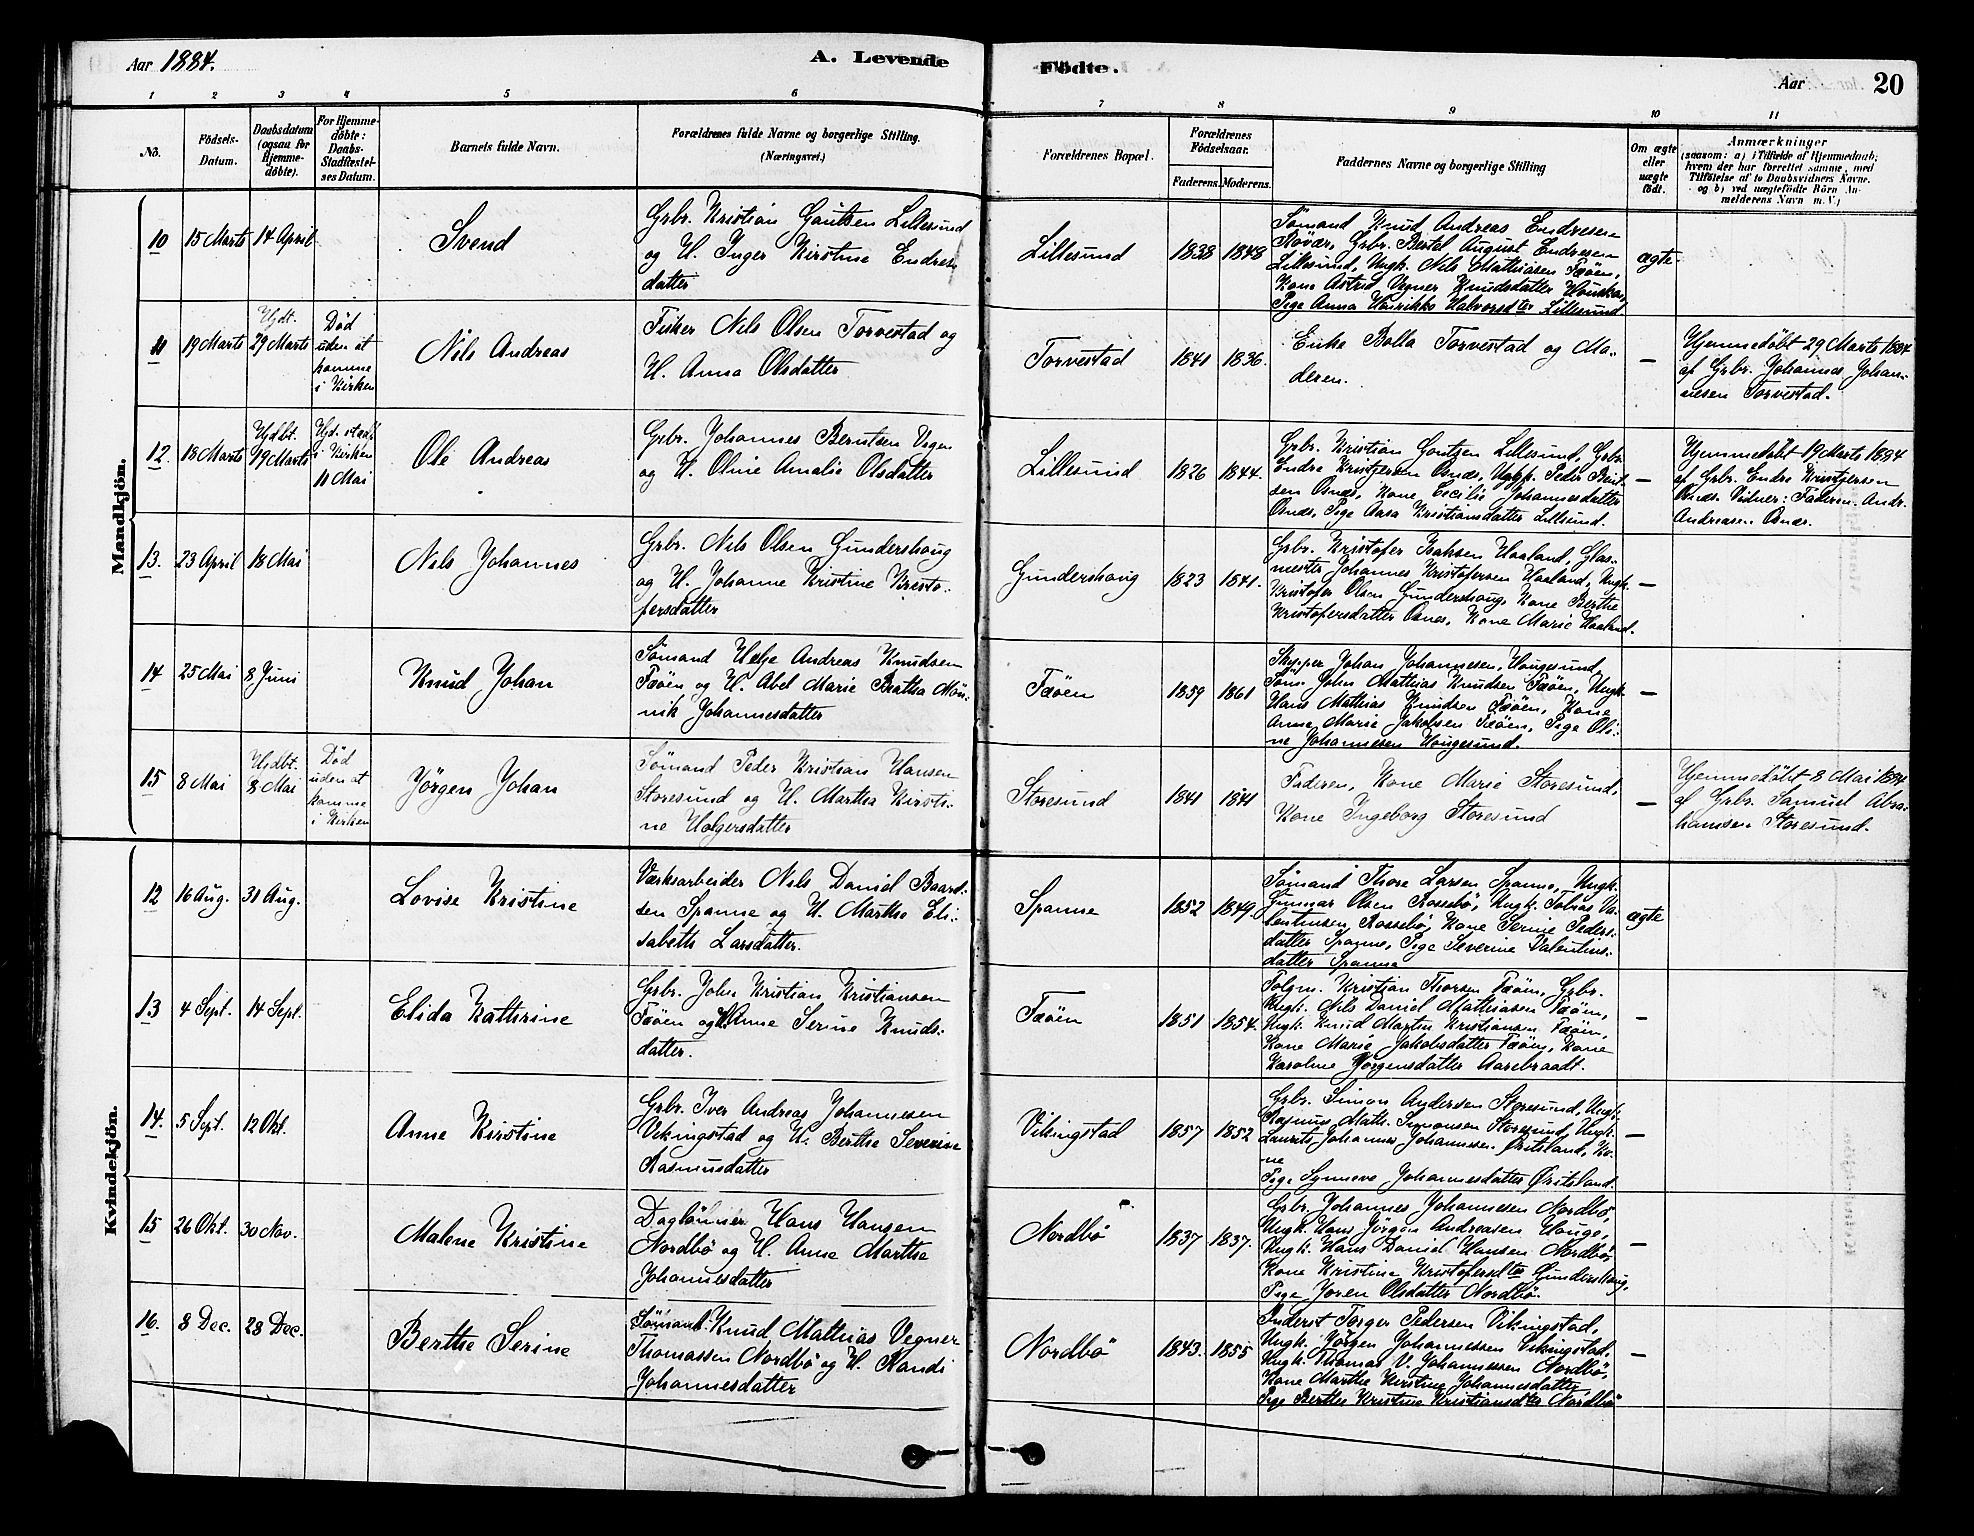 Aar 1884.
A. Levende
Födte.
Aar
20
1
2
3
4
5
6
7
8
9
10
11
No.
Födsels-
Datum.
Daabsdatum
(ogsaa for
Hjemme-
döbte).
For Hjemme-
döbte:
Daabs-
Stadfæstel-
ses Datum.
Barnets fulde Navn.
Forældrenes fulde Navne og borgerlige Stilling.
(Næringsvei.)
Forældrenes Bopæl.
Forældrenes
Födselsaar.
Faderens.
Moderens.
Faddernes Navne og borgerlige Stilling
Om ægte
eller
uægte
födt.
Anmærkninger
(saasom: a) i Tilfælde af Hjemmedaab;
hvem der har forrettet samme, med
Tilföielse af to Daabsvidners Navne.
og b) ved uægtefödte Börn An-
melderens Navn m. V.)
Mandkjön.
10
15 Marts
14 April
Svend
Grbr. Kristian Gautsen Lillesund
og H. Inger Kirstine Endres-
datter
Lillesund
1838
1848
Sömand Knud Andreas Endresen
Rövær, Grbr. Bertel August Endresen
Lillesund, Ungk. Nils Mathiasen Fæöen,
Kone Astrid Vegner Knudsdatter
Pige Anna Henrikke Halvorsdter Lillesund
ægte
11
19 Marts
Hjdt.
29 Marts
Död
uden at
komme
i Kirken
Nils Andreas
Fisker Nils Olsen Torvestad og
H. Anna Olsdatter
Torvestad
1841
1836.
Enke Bolla Torvestad og Mo-
deren.
—
Hjemmedöbt 29 Marts 1884
af Grbr. Johannes Johan-
nesen Torvestad.
12
18 Marts
Hjdbt.
19 Marts
Hjd. stadf.
i Kirken
11 Mai
Ole Andreas
Grbr. Johannes Berntsen
og H. Oline Amalie Olsdatter
Lillesund
1826
1844.
Grbr. Kristian Gautsen Lillesund, Grbr.
Endre Kristjersen Osnæs, Peder
sen Osnæs, Kone Cecilie Johannesdatter
Osnæs, Pige Aasa Kristiansdatter Lillesund.
—
Hjemmedöbt 19 Marts 1884
af Grbr. Endre Kristjersen
Osnæs. Vidner: Faderen. Andr.
Andreasen Osnæs.
13.
23 April
18 Mai
Nils Johannes
Grbr. Nils Olsen Gundershaug
og H. Johanne Kristine Kristo-
fersdatter
Gundershaug
1823
1841.
Grbr. Kristofer Isaksen Haaland, Glas-
mester Johannes Kristofersen Haaland, Ungk.
Kristofer Olsen Gundershaug, Kone Berthe
Kristofersdatter Osnes, Kone Marie Haaland.
—
14
25 Mai
8 Juni
Knud Johan
Sömand Helje Andreas Knudsen
Fæöen og H. Abel Marie Bertha Mön-
nik Johannesdatter
Fæöen
1859
1861
Skipper Johan Johannesen, Haugesund,
Söm. John Mathias Knudsen Fæöen, Ungk.
Hans Mathias Knudsen Fæöen, Kone
Anne Marie Jakobsen Fæöen, Pige Oli-
ne Johannesen Haugesund.
—
15
8 Mai
Hjdbt.
8 Mai
Död
uden at
komme
i Kirken
Jörgen Johan
Sömand Peder Kristian Hansen
Storesund og H. Martha Kirsti-
ne Holgersdatter
Storesund
1841
1841
Faderen, Kone Marie Storesund,
Kone Ingeborg Storesund
—
Hjemmedöbt 8 Mai 1884
af Grbr. Samuel Abra-
hamsen Storesund.
Kvindekjön.
12
16 Aug.
31 Aug.
Lovise Kristine
Værksarbeider Nils Daniel Baard-
sen Spanne og H. Marthe Eli-
sabeth Larsdatter.
Spanne
1852
1849.
Sömand Thore Larsen Spanne, Ungk.
Gunnar Olsen Rossebö, Ungk. Tobias Va-
lentinsen Rossebö, Kone Serine Peders-
datter Spanne, Pige Severine Valentins-
datter Spanne
ægte
13
4 Sept.
14 Sept.
Elida Kathrine
Grbr. John Kristian Kristiansen
Fæöen og H. Anne Serine Knuds-
datter.
Fæöen
1851
1854.
Folgm. Kristian Thorsen Fæöen, Grbr.
Ungk. Nils Daniel Mathiasen Fæöen,
Ungk. Knud Martin Kristiansen Fæöen,
Kone Marie Jakobsdatter Fæöen, Kone
Karoline Jörgensdatter Aarebraadt.
—
14.
5 Sept.
12 Okt.
Anne Kirstine
Grbr. Iver Andreas Johannesen
Vikingstad og H. Berthe Severine
Rasmusdatter
Vikingstad
1857
1852
Grbr. Simon Andersen Storesund, Ungk.
Rasmus Math. Simonsen Storesund, Ungk.
Laurits Johannes Johannesen Öritsland, Ko-
ne
Pige Synneve Johannesdatter Öritsland.
—
15
26 Okt.
30 Nov.
Malene Kristine
Daglönner Hans Hansen
Nordbö og H. Anne Marthe
Johannesdatter
Nordbö
1837
1837.
Grbr. Johannes Johannesen Nordbö,
Ungk. Hans Jörgen Andreasen Hauge,
Ungk. Hans Daniel Hansen Nordbö,
Kone Kristine Kristofersdter Gundershaug,
Pige Joren Olsdatter Nordbö.
—
16.
8 Dec.
28 Dec.
Berthe Serine
Sömand Knud Mathias Vegner
Thomassen Nordbö og H. Randi
Johannesdatter
Nordbö
1843.
1855
Inderst Torger Pedersen Vikingstad,
Ungk. Jörgen Johannessen Vikingstad,
Ungk. Thomas V. Johannessen Nordbö,
Kone Marthe Kirstine Johannesdatter,
Pige Berthe Kristine Kristiansdter Nordbö
—